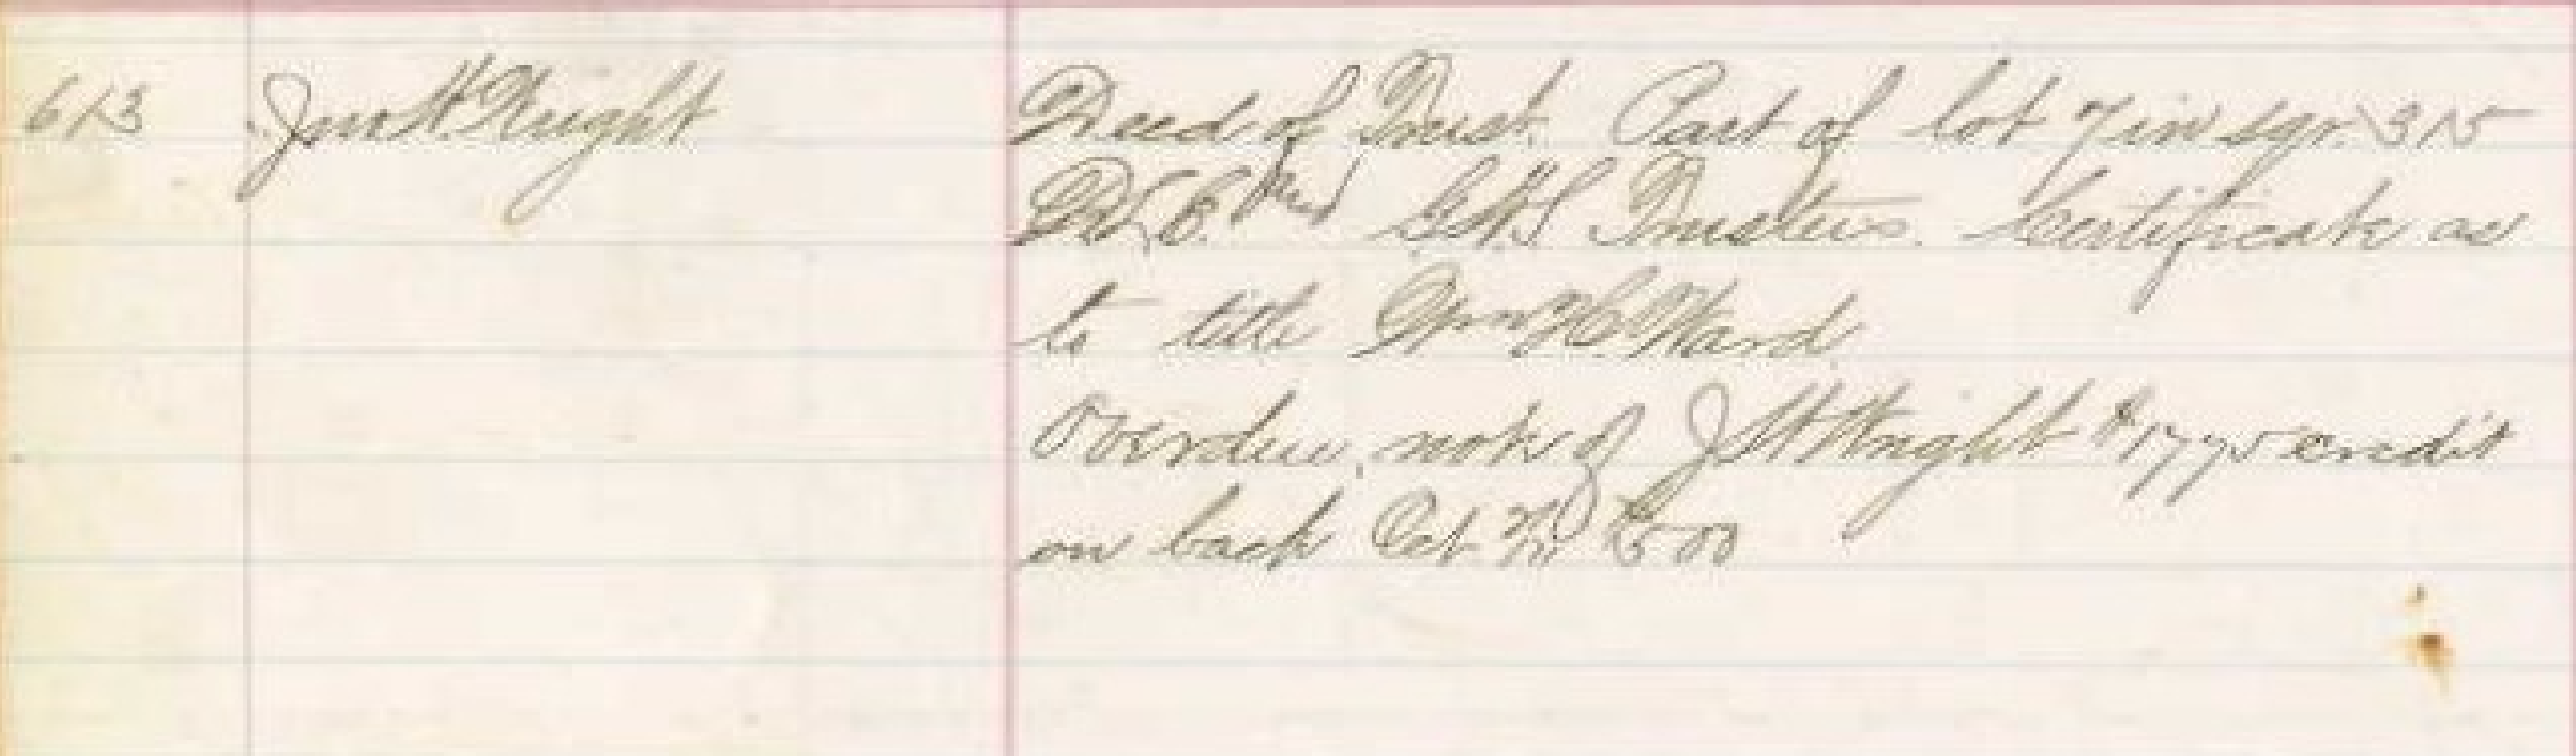 613 Jno H. Wright Deed of Trust. Part of lot 7 in sqr. 315
and Trustees. Certificate as
to title Wm H. Ward.
Overdue note of J H Wright $1775 credit
on back Oct. $500